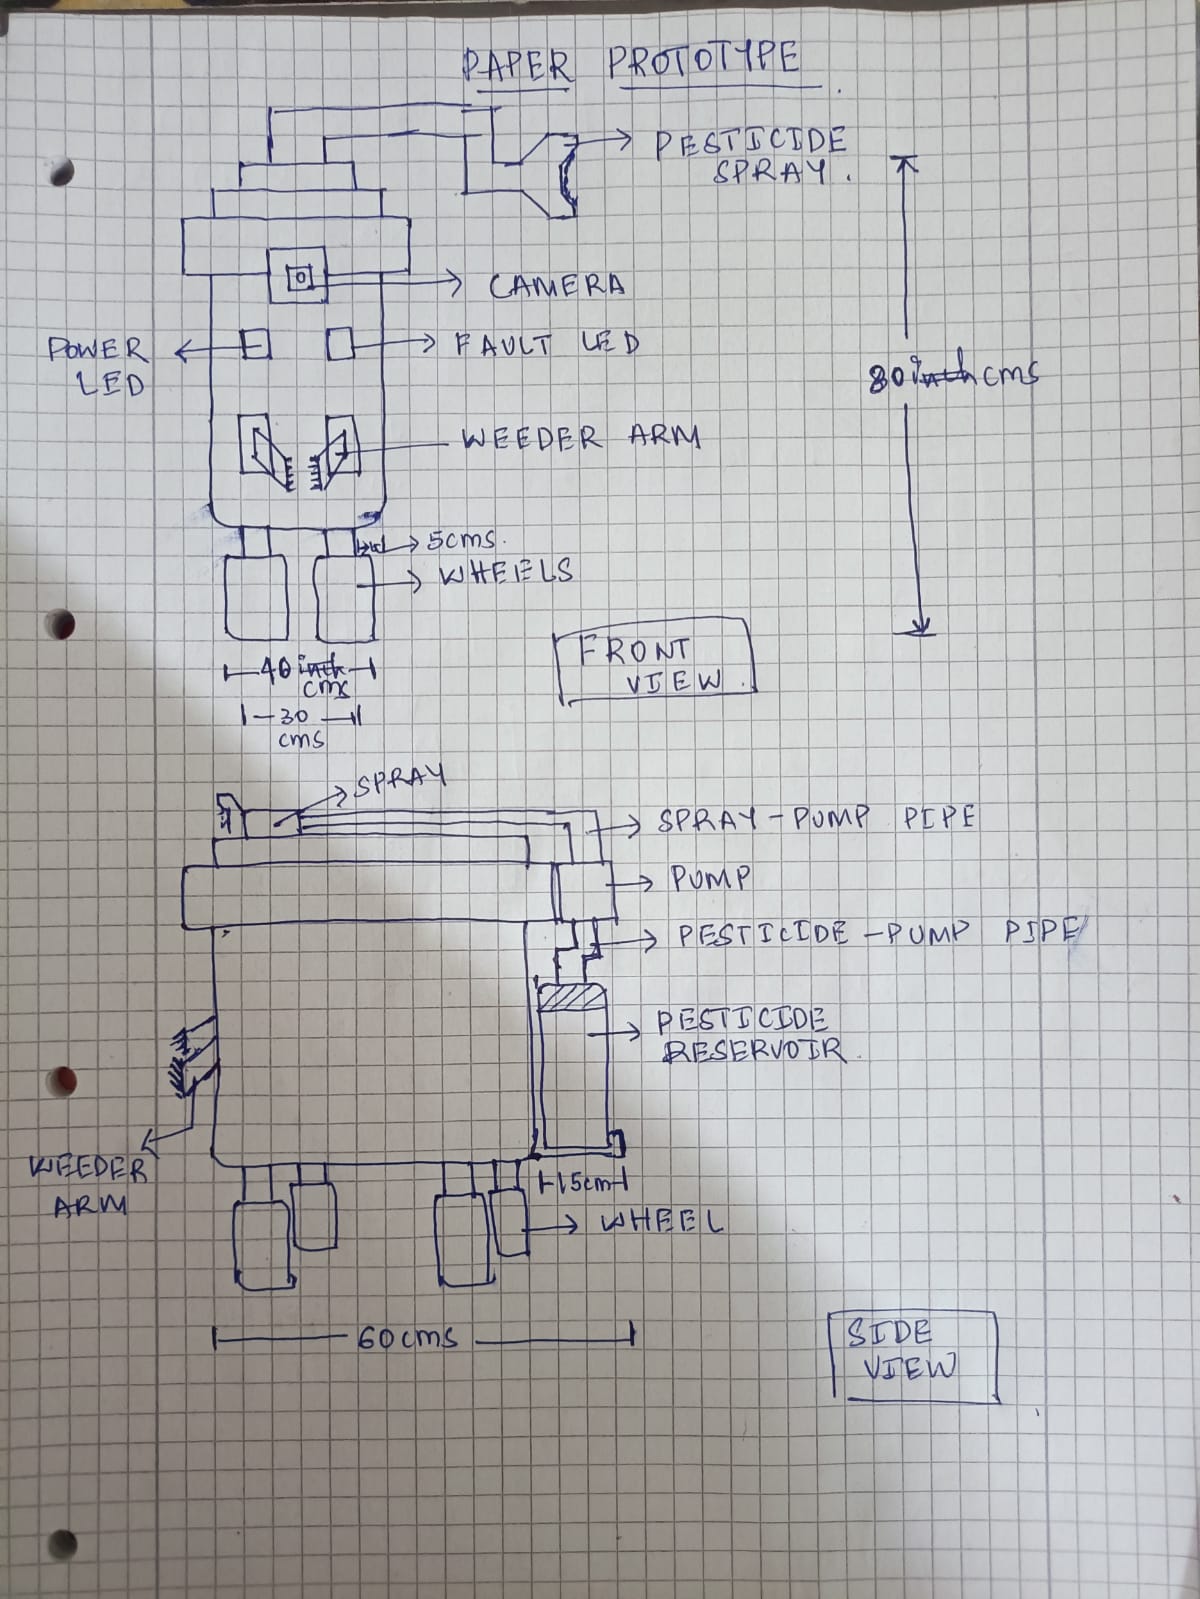 PAPER PROTOTYPE.
PESTICIDE
SPRAY.
CAMERA
POWER
LED
FAULT LED
80 inch cms
WEEDER ARM
5cms.
WHEELS
40 inch
cms
30
cms
FRONT
VIEW.
SPRAY
SPRAY-PUMP PIPE
PUMP
PESTICIDE-PUMP PIPE
PESTICIDE
RESERVOIR.
WEEDER
ARM
15cm
WHEEL
60cms
SIDE
VIEW